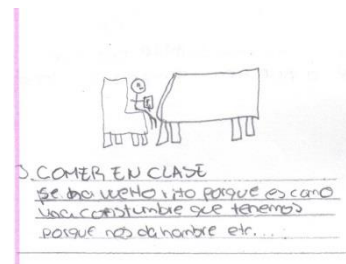 3. COMER EN CLASE
Se ha vuelto rito porque es como
una constumbre que tenemos
porque nos da hambre etc....